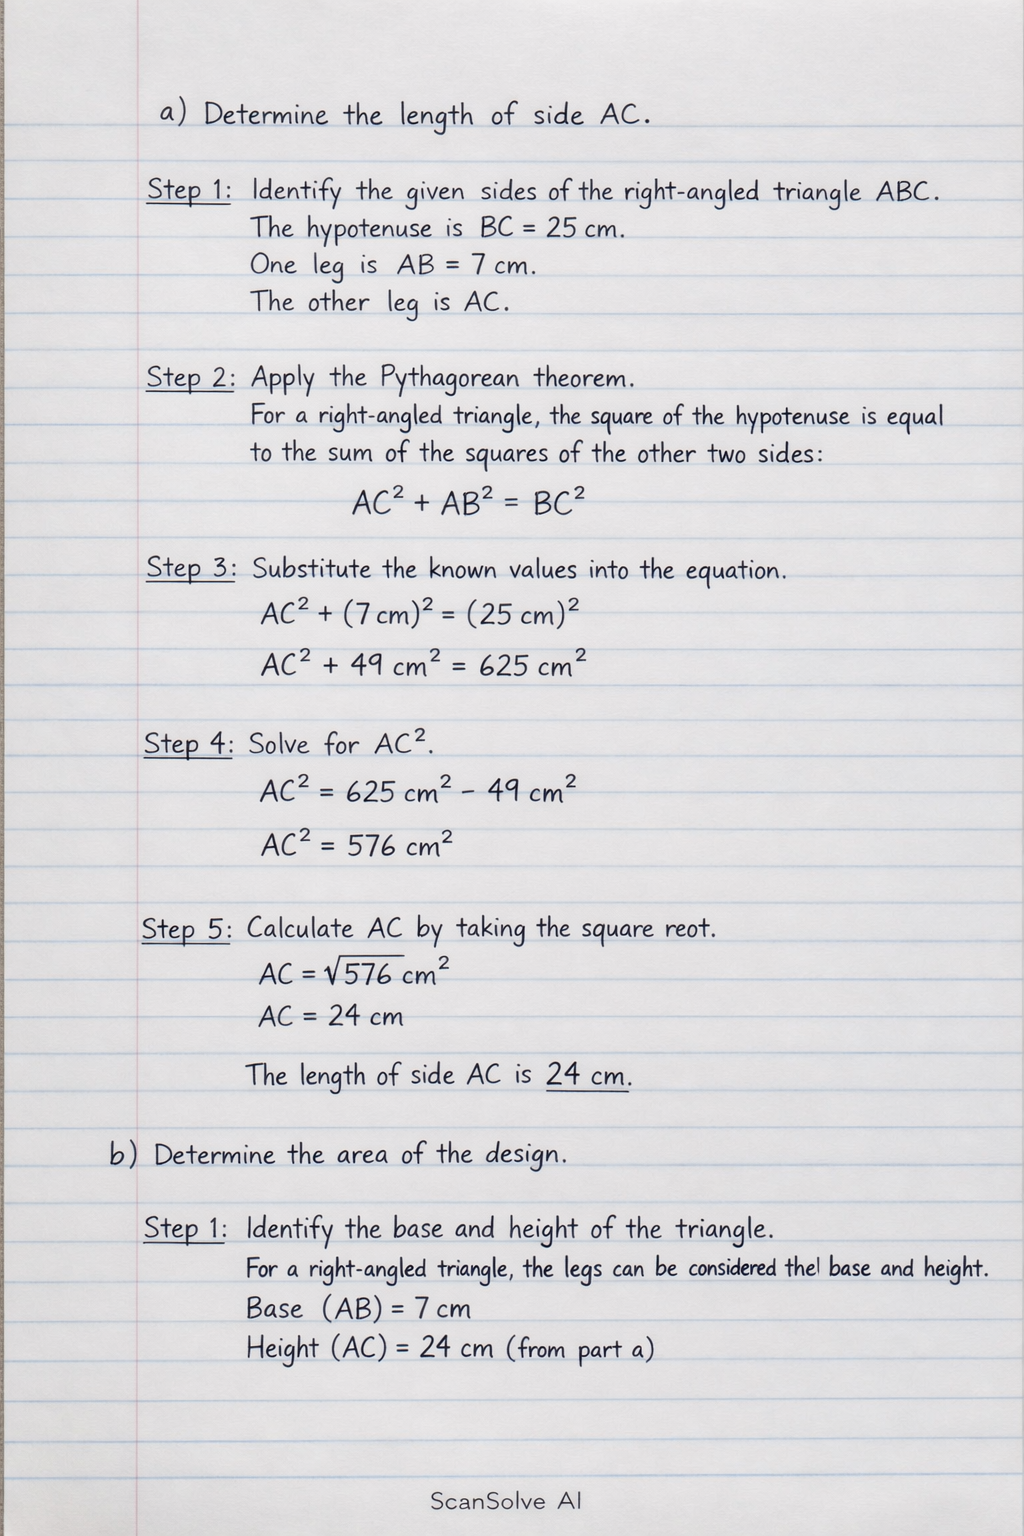 a) Determine the length of side AC.
Step 1: Identify the given sides of the right-angled triangle ABC.
The hypotenuse is BC = 25 cm.
One leg is AB = 7 cm.
The other leg is AC.
Step 2: Apply the Pythagorean theorem.
For a right-angled triangle, the square of the hypotenuse is equal
to the sum of the squares of the other two sides:
AC² + AB² = BC²
Step 3: Substitute the known values into the equation.
AC² + (7 cm)² = (25 cm)²
AC² + 49 cm² = 625 cm²
Step 4: Solve for AC².
AC² = 625 cm² - 49 cm²
AC² = 576 cm²
Step 5: Calculate AC by taking the square reot.
AC = √576 cm²
AC = 24 cm
The length of side AC is 24 cm.
b) Determine the area of the design.
Step 1: Identify the base and height of the triangle.
For a right-angled triangle, the legs can be considered thel base and height.
Base (AB) = 7 cm
Height (AC) = 24 cm (from part a)
ScanSolve AI